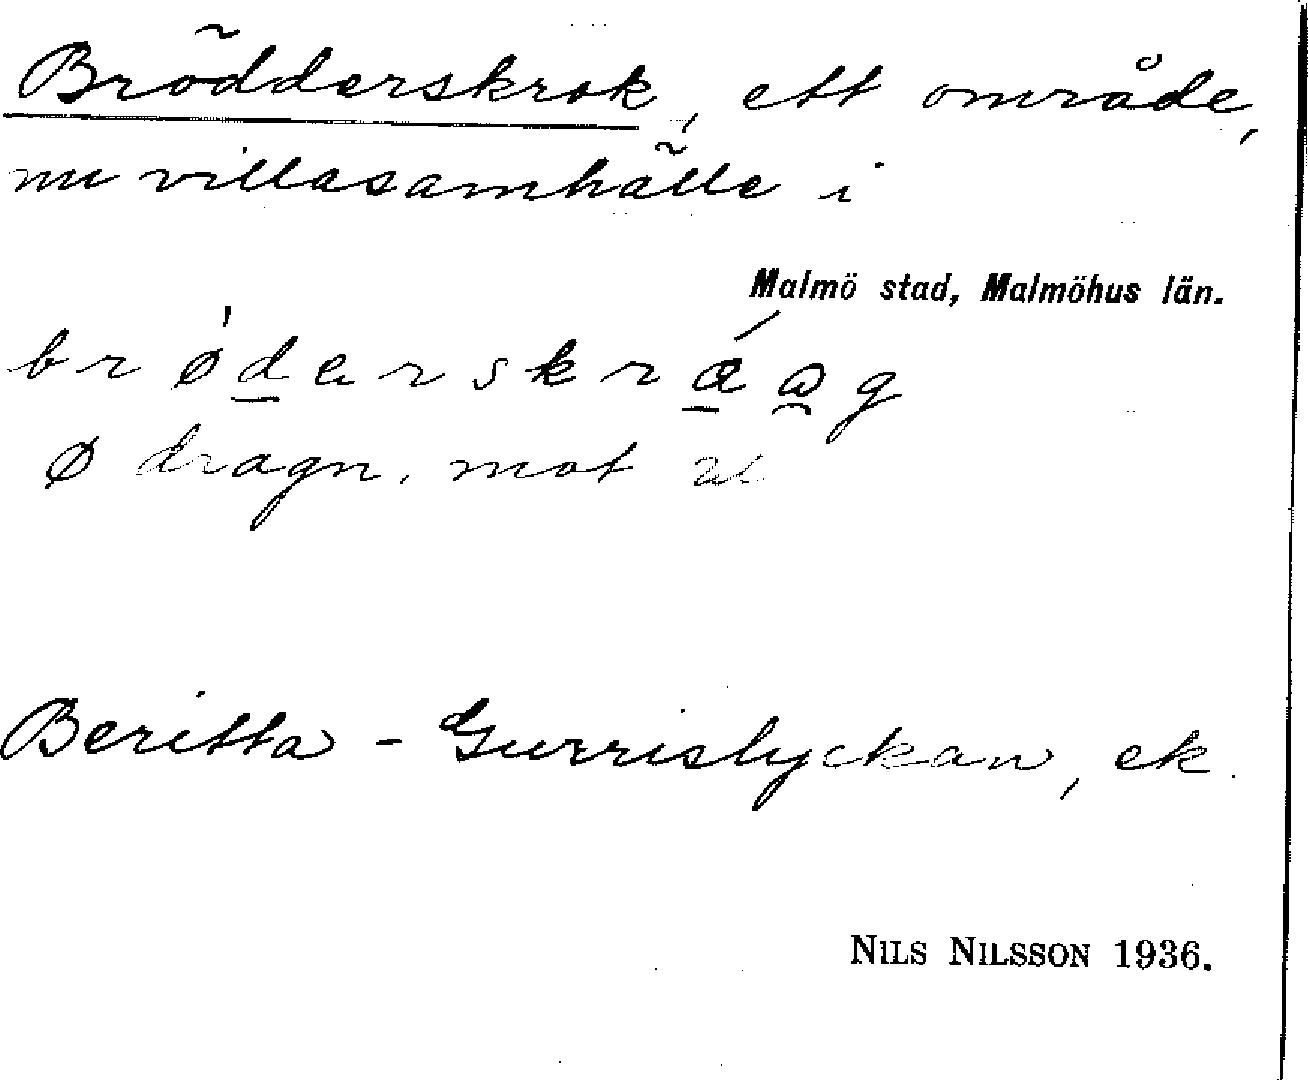 Brödderskrok, ett område,
nu villasamhälle i
Malmö stad, Malmöhus län.
brødarskræag
ø dragn. mot
Beritta - Gurrislyckan, ek.
NILS NILSSON 1936.